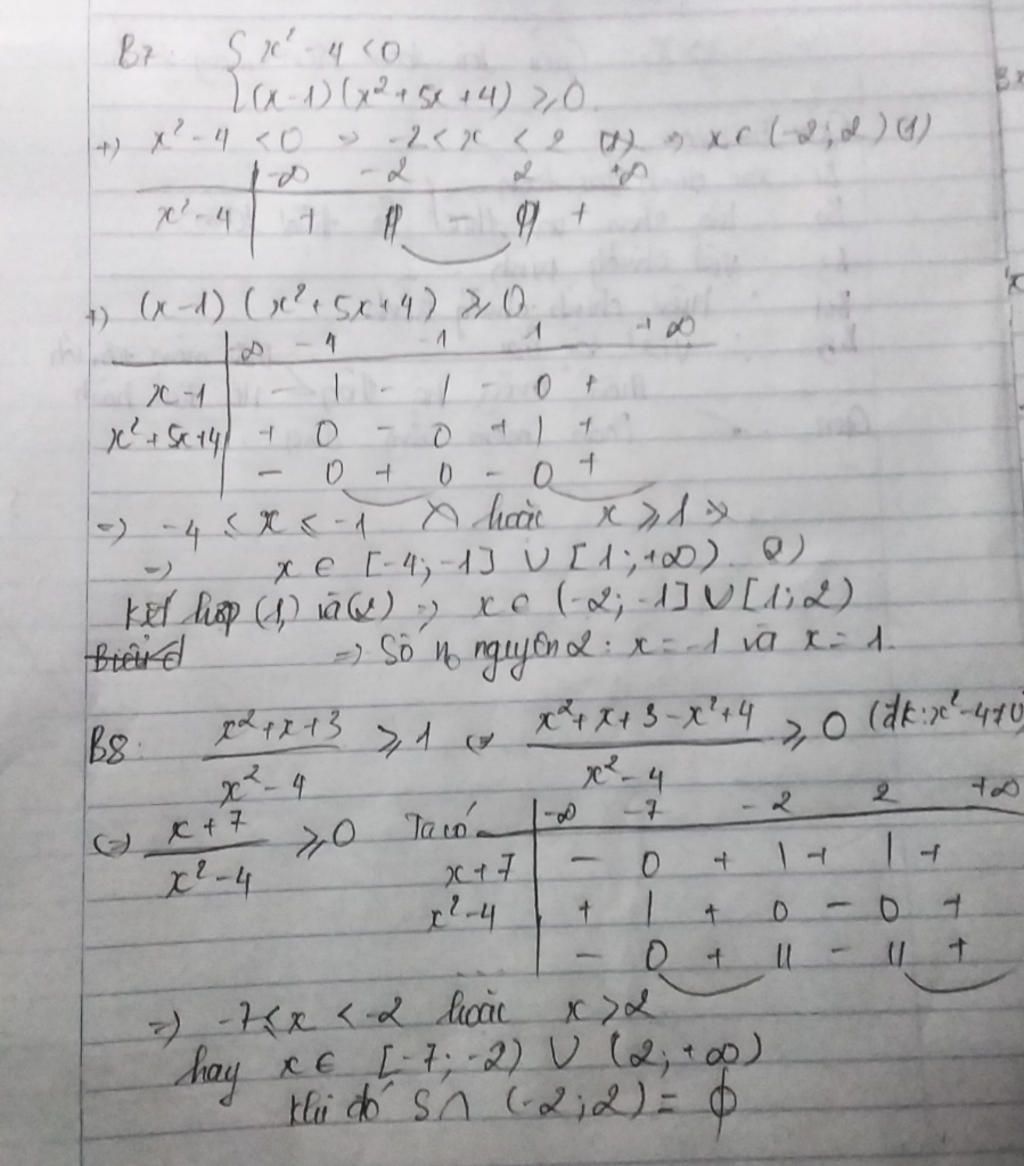 B7: { x² - 4 < 0
{ (x-1)(x²+5x+4) ≥ 0
+) x² - 4 < 0 => -2 < x < 2 => x ∈ (-2; 2) (1)
-∞ -2 2 +∞
x² - 4 + 0 - 0 +
+) (x-1) (x²+5x+4) ≥ 0
∞ -4 -1 1 +∞
x-1 - | - | - 0 +
x²+5x+4 + 0 - 0 + | +
- 0 + 0 - 0 +
=> -4 ≤ x ≤ -1 hoặc x ≥ 1
=> x ∈ [-4; -1] ∪ [1; +∞). (2)
Kết hợp (1) và (2) => x ∈ (-2; -1] ∪ [1; 2)
=> Số no nguyên 2: x = -1 và x = 1.
B8: (x²+x+3)/(x²-4) ≥ 1 <=> (x²+x+3-x²+4)/(x²-4) ≥ 0 (đk: x²-4≠0)
<=> (x+7)/(x²-4) ≥ 0 Ta có -∞ -7 -2 2 +∞
x+7 - 0 + | + | +
x²-4 + | + 0 - 0 +
- 0 + || - || +
=> -7 ≤ x < -2 hoặc x > 2
hay x ∈ [-7; -2) ∪ (2; +∞)
khi đó S ∩ (-2; 2) = ∅